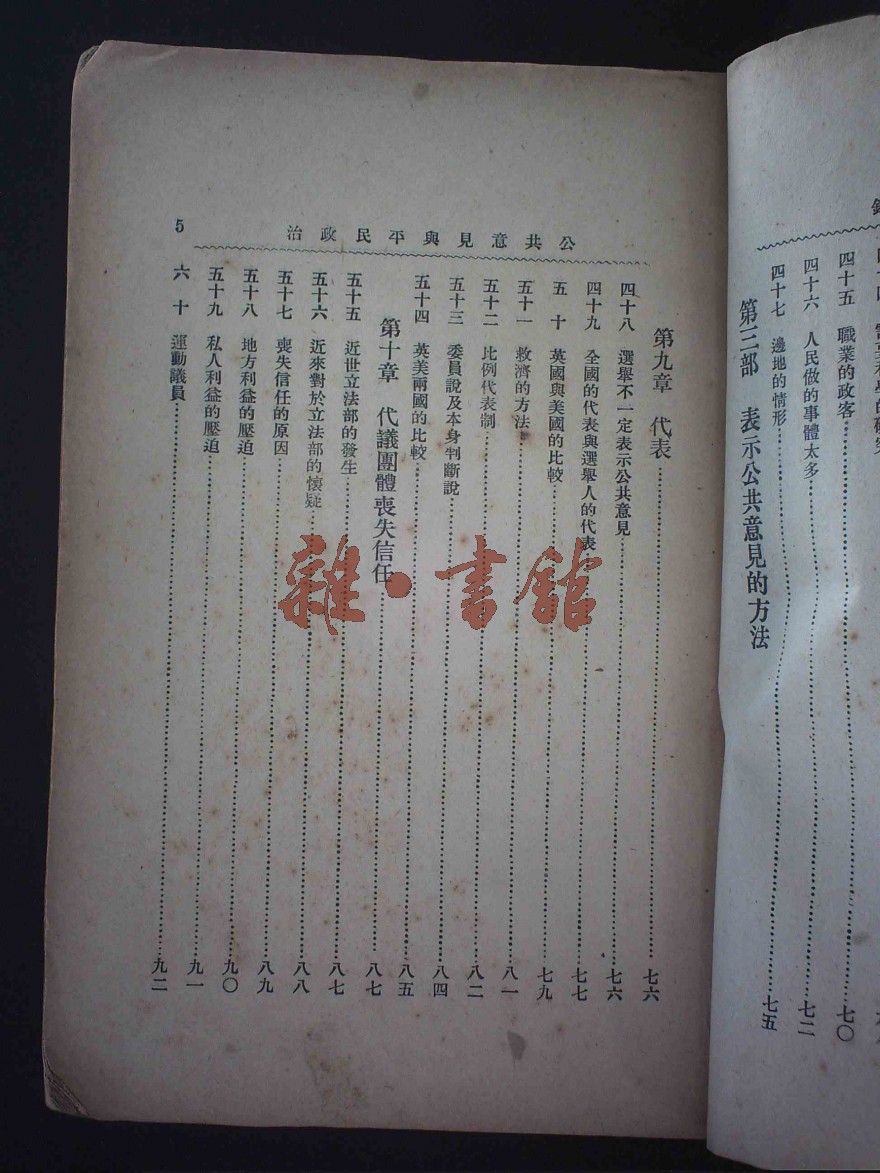 四十五　職業的政客……七〇
四十六　人民做的事體太多……七二
四十七　邊地的情形……七五
第三部　表示公共意見的方法
公共意見與平民政治
5
第九章　代表……七六
四十八　選舉不一定表示公共意見……七六
四十九　全國的代表與選舉人的代表……七七
五　十　英國與美國的比較……七九
五十一　救濟的方法……八一
五十二　比例代表制……八二
五十三　委員說及本身判斷說……八四
五十四　英美兩國的比較……八五
第十章　代議團體喪失信任……八七
五十五　近世立法部的發生……八七
五十六　近來對於立法部的懷疑……八八
五十七　喪失信任的原因……八九
五十八　地方利益的壓迫……九〇
五十九　私人利益的壓迫……九一
六　十　運動議員……九二
雜·書館